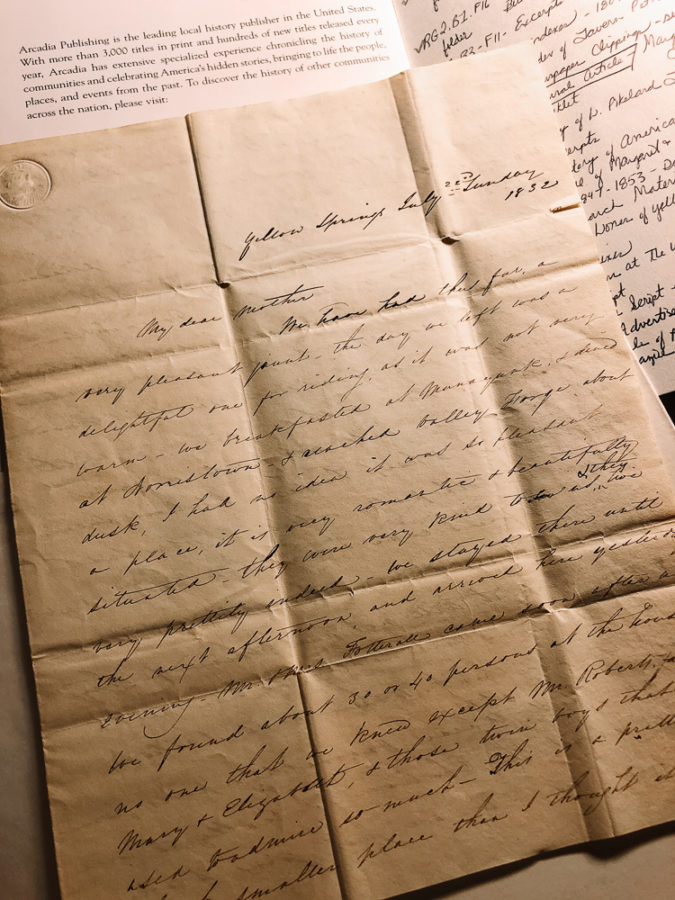 Arcadia Publishing is the leading local history publisher in the United States.
With more than 3,000 titles in print and hundreds of new titles released every
year, Arcadia has extensive specialized experience chronicling the history of
communities and celebrating America's hidden stories, bringing to life the people,
places, and events from the past. To discover the history of other communities
across the nation, please visit:
RG2, B1, F16
folder
F11- Excerpts
of Tavern
Clippings
Article
of D. Pikeland
of America
of Margaret &
1847-1853-
Material
Donor of Yell
at The
Script -
Advertise
Yellow Springs July 22nd Sunday
1832
My dear Mother
We have had thus far, a
very pleasant jaunt - the day we left was a
delightful one for riding, as it was not very
warm - we breakfasted at Manayunk, & dined
at Norristown - & reached Valley-Forge about
dusk, I had no idea it was so pleasant
a place, it is very romantic & beautifully
situated - they were very kind to us, & they live
very prettily indeed - we stayed there until
the next afternoon, and arrived here yesterday
evening - Mr. Fotterall came soon after
We found about 30 or 40 persons at the house
no one that we knew except Mr. Roberts,
Mary & Elizabeth, & those twin boys that
used to admire so much - This is a
smaller place than I thought it